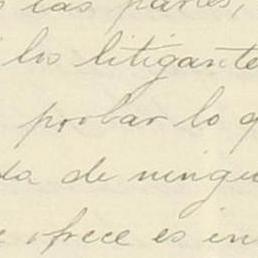 las partes,
los litigante
probar lo q
da de ningu
ofrece es in